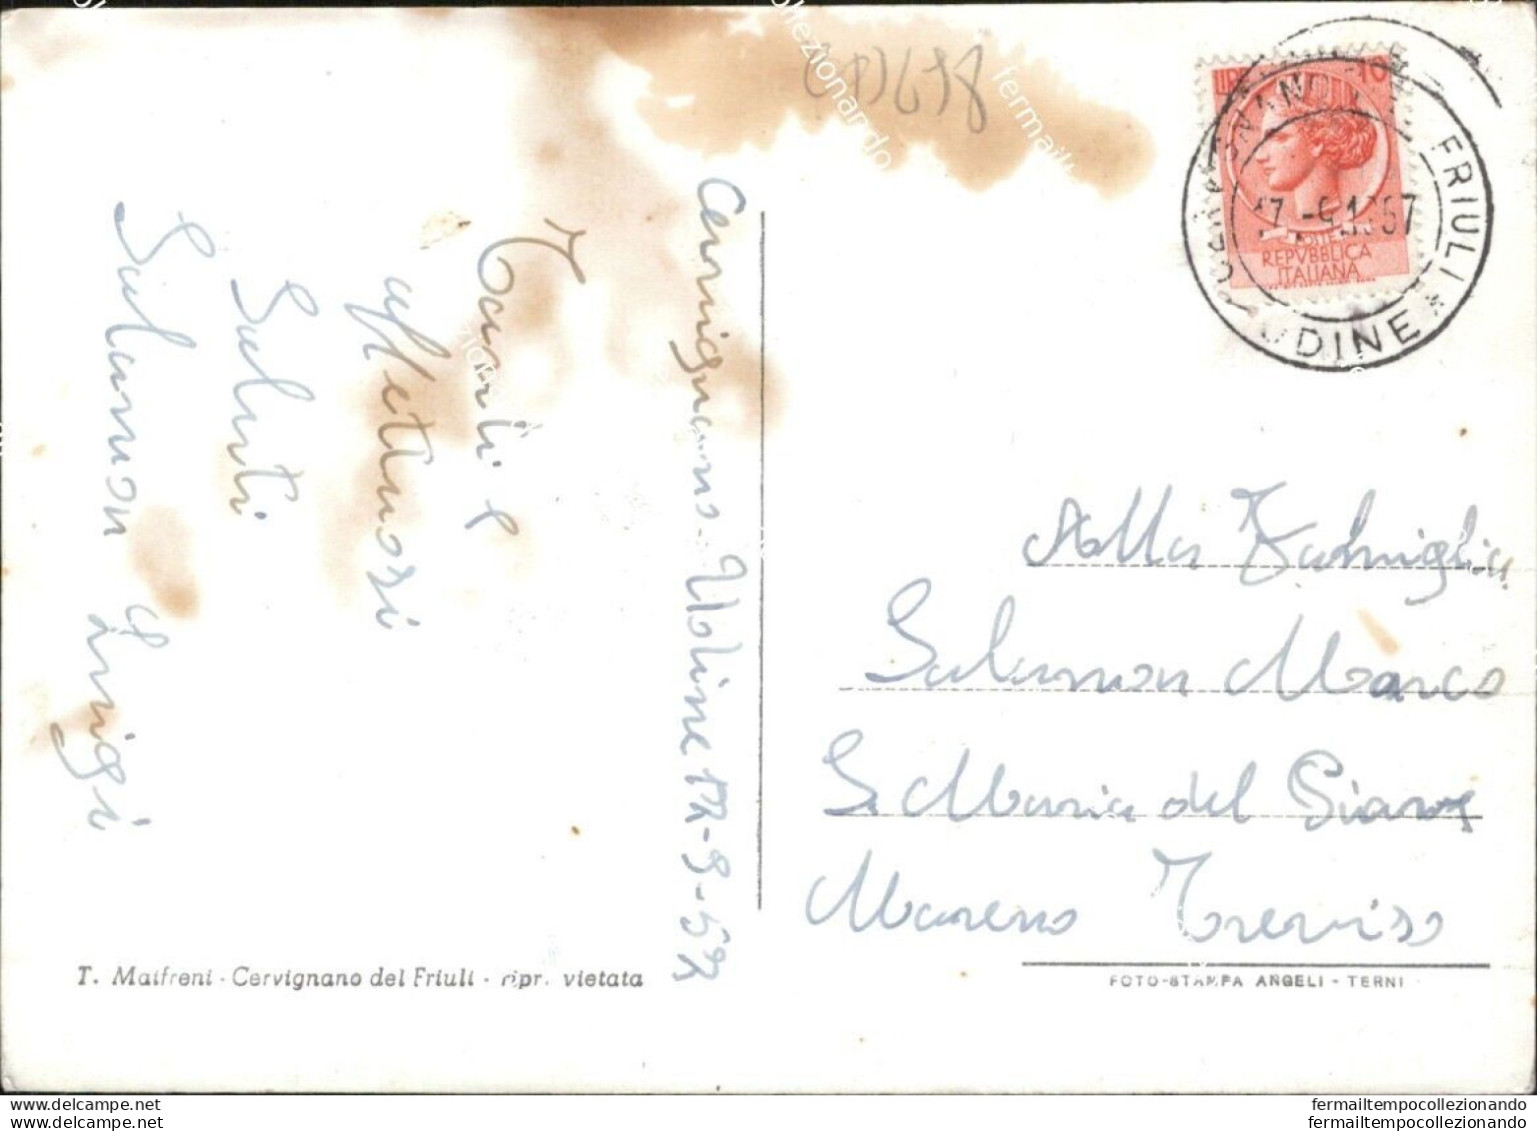 CD698
Cervignano - Udine 17-9-57
Tanti e
affettuosi
Saluti
Salamon Luigi
LIRE 10
POSTE
REPVBBLICA
ITALIANA
CERVIGNANO DEL FRIULI * UDINE *
17-9.1957
Alla Fahmiglia
Salamon Marco
S. Maria del Piave
Mareno Treviso
T. Maifreni - Cervignano del Friuli - ripr. vietata
FOTO-STAMPA ANGELI - TERNI
fermailtempocollezionando
fermailtempocollezionando
fermailtempocollezionando
fermailtempocollezionando